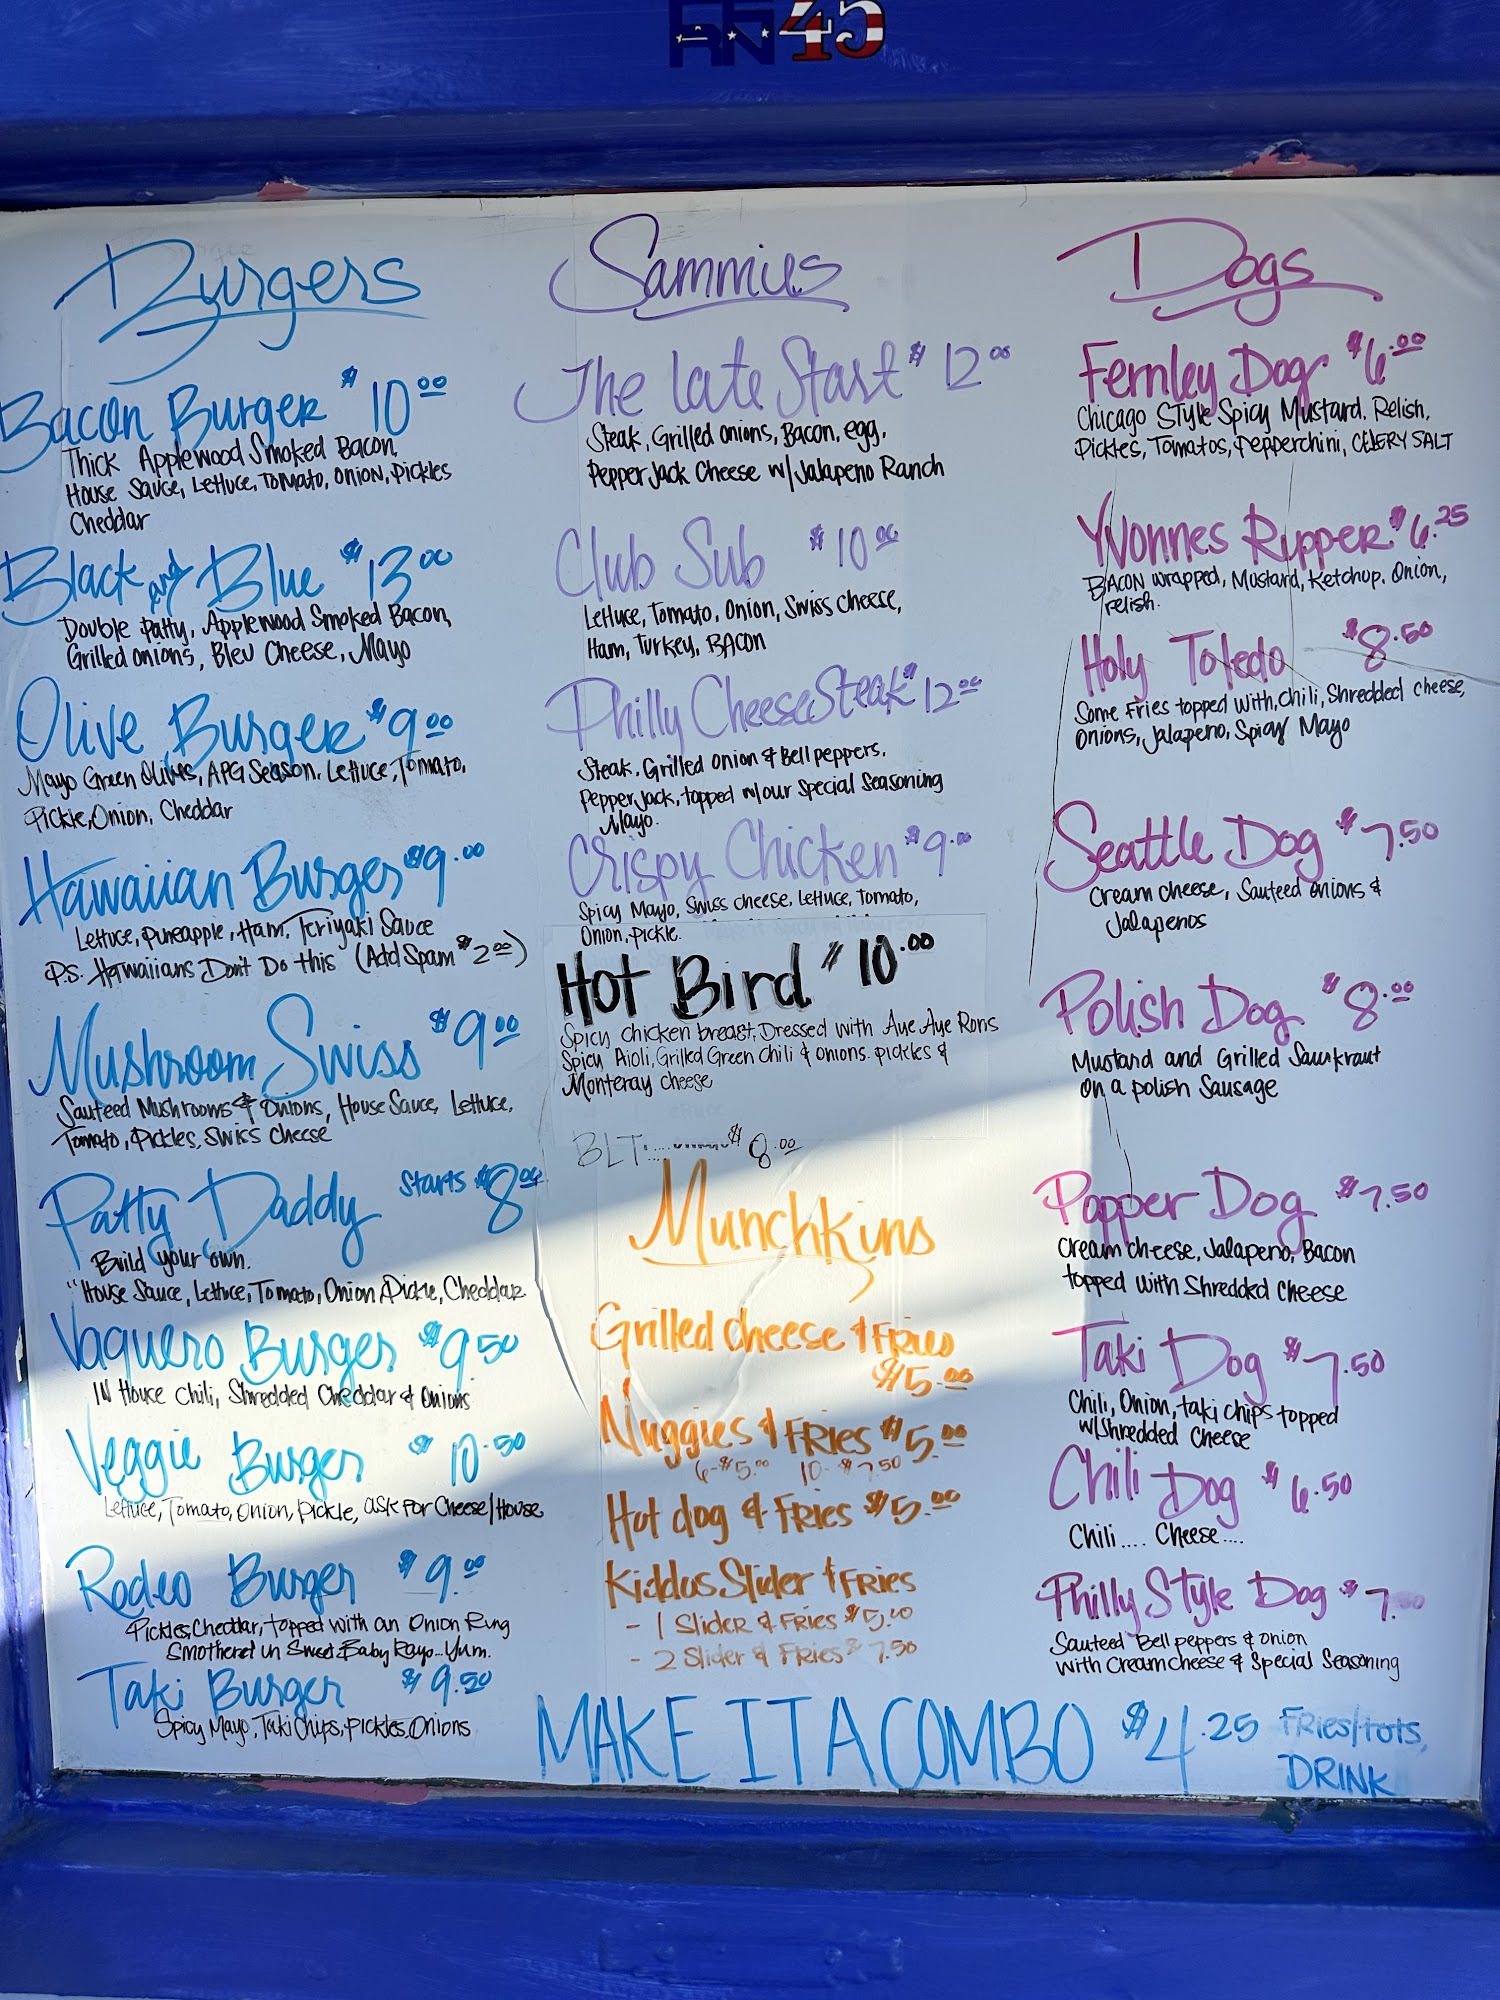 45
Burgers
Bacon Burger $10.00
Thick Applewood Smoked Bacon,
House Sauce, Lettuce, Tomato, Onion, Pickles
Cheddar
Black and Blue $13.00
Double Patty, Applewood Smoked Bacon,
Grilled onions, Bleu Cheese, Mayo
Olive Burger $9.00
Mayo Green Olives, APG Season. Lettuce, Tomato,
Pickle, Onion, Cheddar
Hawaiian Burger $9.00
Lettuce, pineapple, Ham, Teriyaki Sauce
P.S. Hawaiians Don't Do this (Add Spam $2.00)
Mushroom Swiss $9.00
Sauteed Mushrooms & Onions, House Sauce, Lettuce,
Tomato, Pickles, Swiss Cheese
Patty Daddy Starts $8.00
Build your own.
"House Sauce, Lettuce, Tomato, Onion, Pickle, Cheddar
Vaquero Burger $9.50
IN House Chili, Shredded Cheddar & Onions
Veggie Burger $10.50
Lettuce, Tomato, Onion, Pickle, ask for Cheese/House
Rodeo Burger $9.00
Pickles, Cheddar, topped with an Onion Ring
Smothered in Sweet Baby Rays...Yum.
Taki Burger $9.50
Spicy Mayo, Taki Chips, Pickles, Onions
Sammies
The Late Start $12.00
Steak, Grilled onions, Bacon, egg,
Pepper Jack Cheese w/Jalapeno Ranch
Club Sub $10.00
Lettuce, Tomato, Onion, Swiss Cheese,
Ham, Turkey, BACON
Philly CheeseSteak $12.00
Steak, Grilled Onion & Bell peppers,
Pepper Jack, topped w/our Special Seasoning
Mayo.
Crispy Chicken $9.00
Spicy Mayo, Swiss cheese, Lettuce, Tomato,
Onion, pickle.
Hot Bird $10.00
Spicy chicken breast, Dressed with Aye Aye Rons
Spicy Aioli, Grilled Green Chili & onions. pickles &
Monteray cheese
BLT $8.00
Munchkins
Grilled Cheese & Fries
$5.00
Nuggies & Fries $5.00
6-$5.00 10-$7.50
Hot dog & Fries $5.00
Kiddos Slider & Fries
- 1 Slider & Fries $5.00
- 2 Slider & Fries $7.50
Dogs
Fernley Dog $6.00
Chicago Style Spicy Mustard. Relish,
Pickles, Tomatos, Pepperchini, CELERY SALT
Yvonnes Ripper $6.25
BACON wrapped, Mustard, Ketchup, Onion,
relish.
Holy Toledo $8.50
Some Fries topped with, Chili, Shredded Cheese,
Onions, Jalapeno, Spicy Mayo
Seattle Dog $7.50
Cream cheese, Sauteed onions &
Jalapenos
Polish Dog $8.00
Mustard and Grilled Saurkraut
on a polish Sausage
Popper Dog $7.50
Cream cheese, Jalapeno, Bacon
topped with Shredded Cheese
Taki Dog $7.50
Chili, Onion, taki chips topped
w/shredded Cheese
Chili Dog $6.50
Chili.... Cheese....
Philly Style Dog $7.
Sauteed Bell peppers & onion
with Cream cheese & Special Seasoning
MAKE IT A COMBO $4.25 Fries/tots,
DRINK